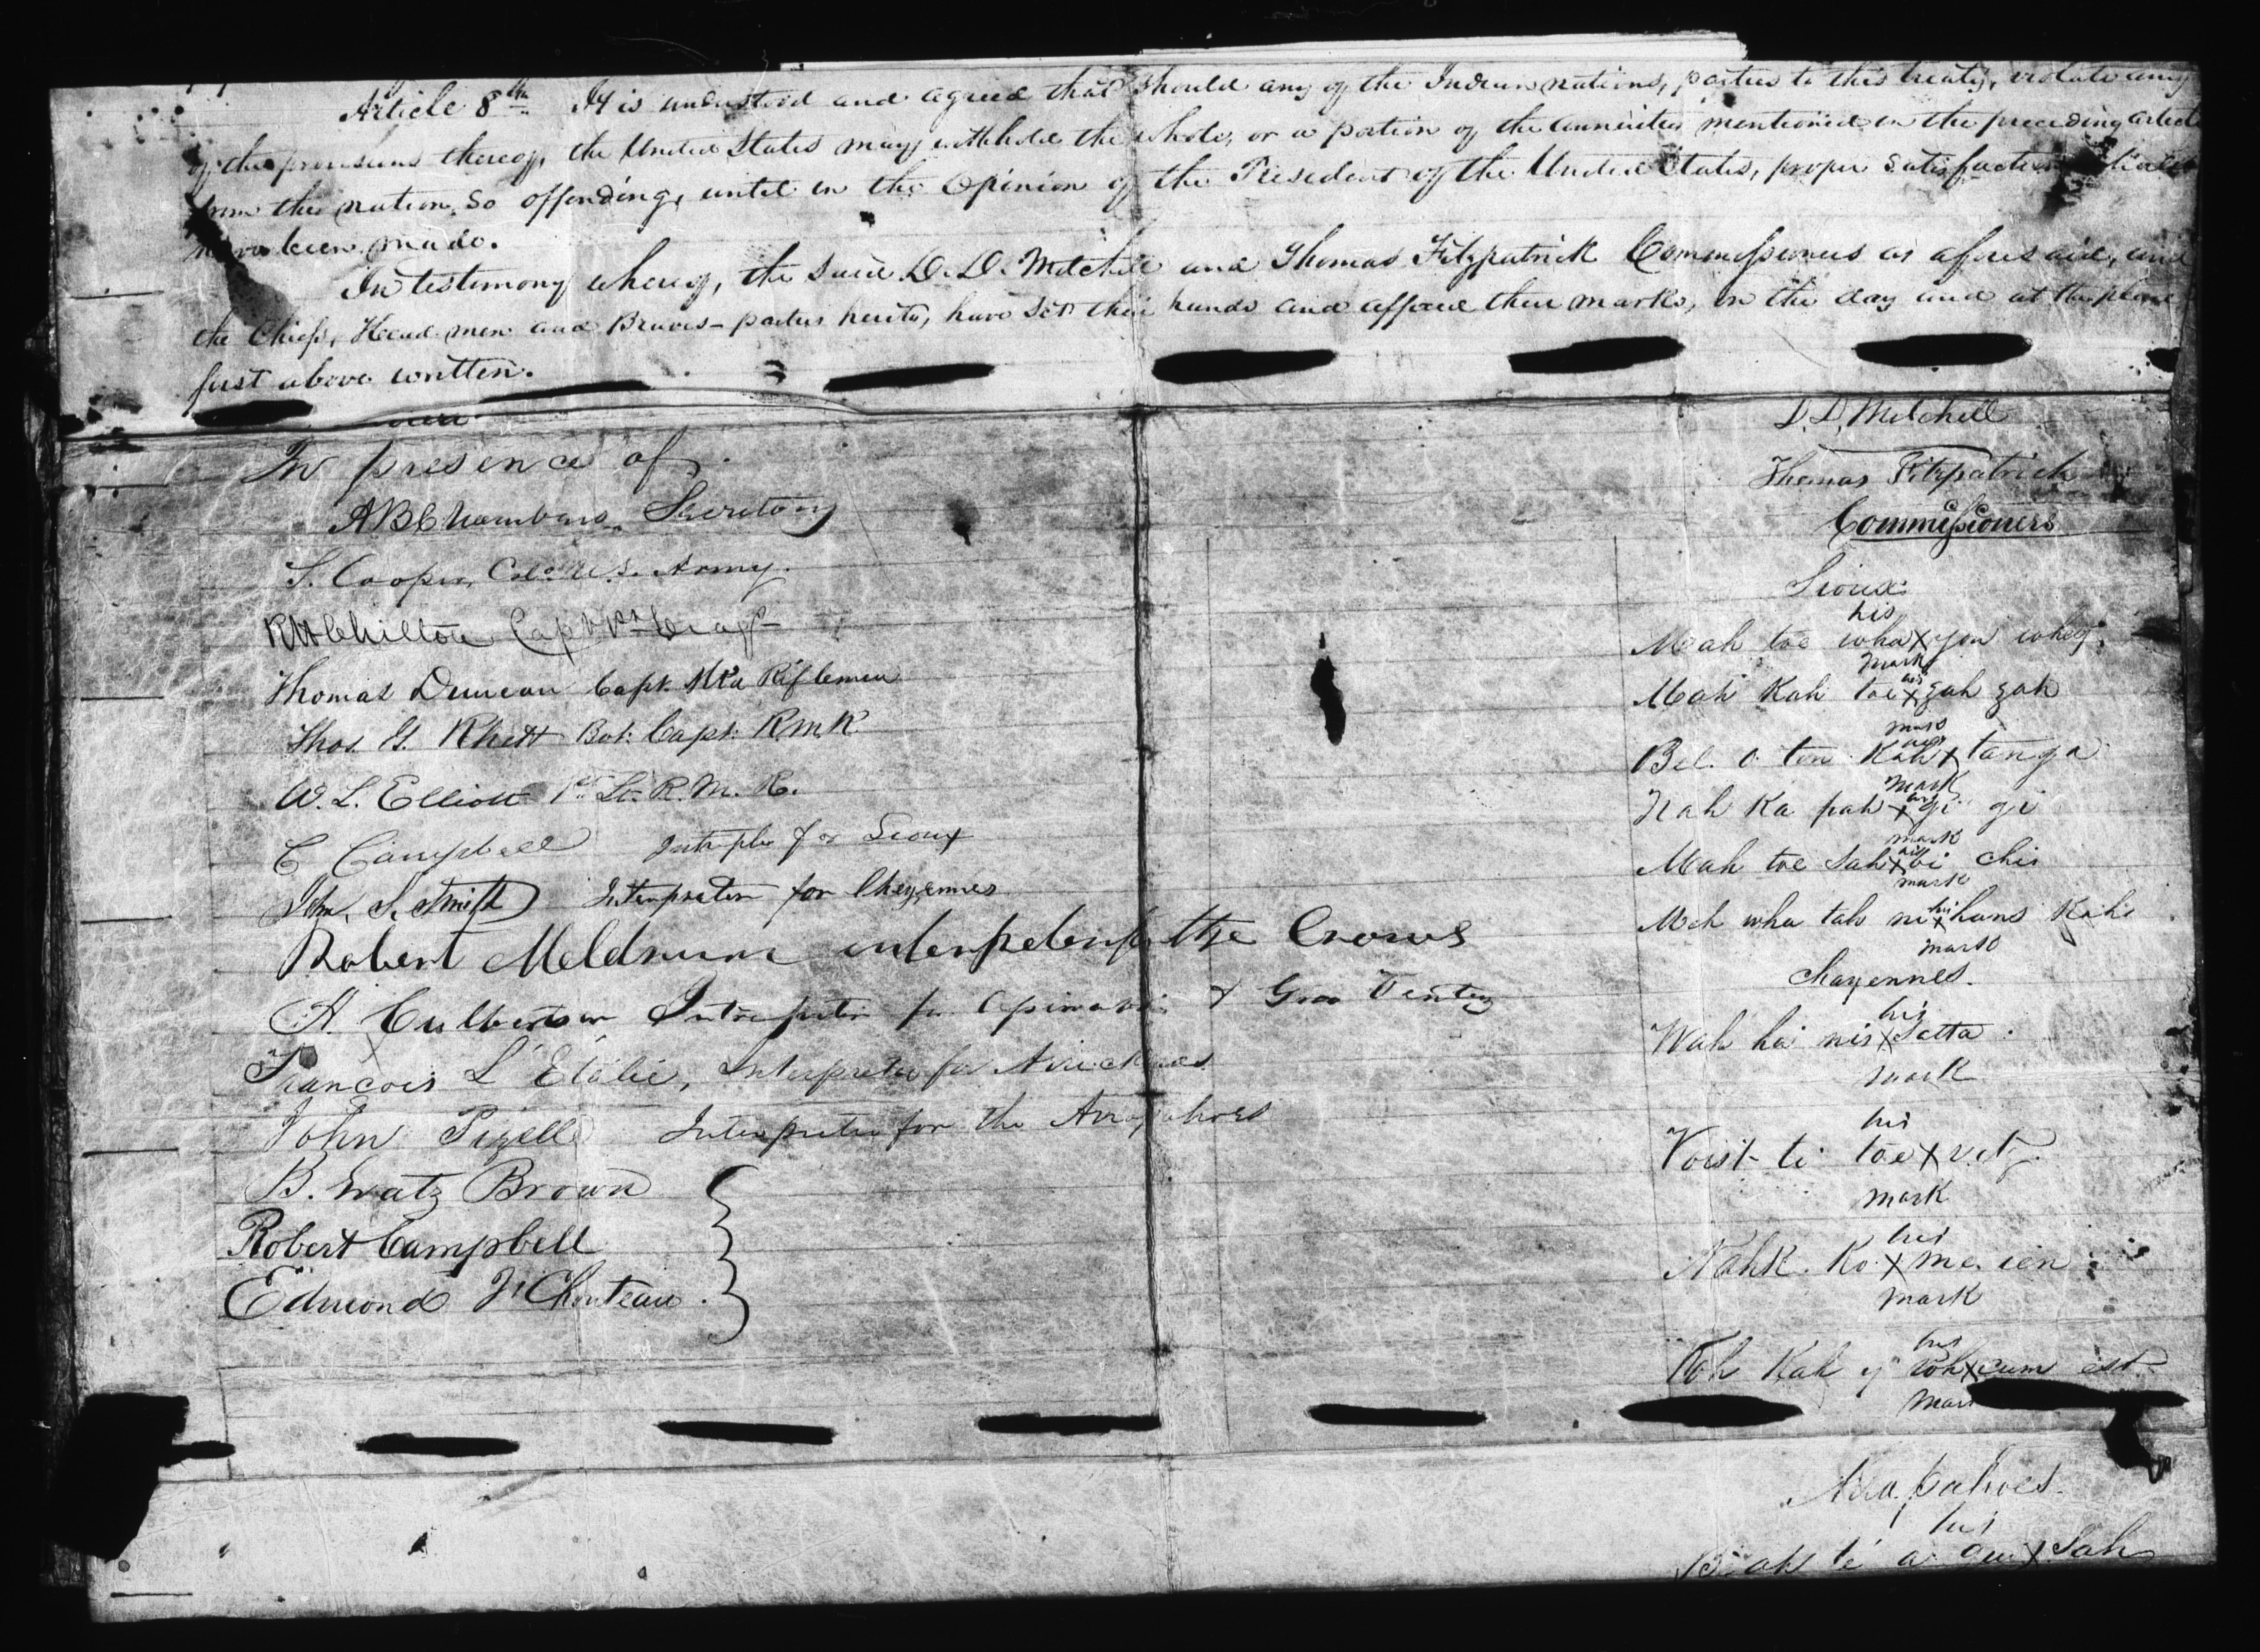 Article 8th. It is understood and agreed that should any of the Indian nations, parties to this treaty, violate any
of the provisions thereof, the United States may withhold the whole, or a portion of the annuities mentioned in the preceding article
from the nation so offending, until in the opinion of the President of the United States, proper satisfaction
have been made.
In testimony whereof, the said D. D. Mitchell and Thomas Fitzpatrick Commissioners as aforesaid, and
the Chiefs, Head men and Braves - parties hereto, have set their hands and affixed their marks, on the day and at the place
first above written.
D. D. Mitchell
Thomas Fitzpatrick
Commissioners
In presence of
A B Chambers Secretary
S. Cooper, Col. U. S. Army.
R H Chilton Capt 1st Drags
Thomas Duncan Capt. Mtd Riflemen
Thos. G. Rhett Bvt. Capt. R.M.R.
W. L. Elliott 1st Lt. R. M. R.
C Campbell Interpter for Sioux
John S. Smith Interpreter for Cheyennes
Robert Meldrum interpeter for the Crows
H. Culbertson Interpeter for & Gros Ventres
Francois L'Etalie, Interpreter for Aricarees
John Pizelle Interpreter for the Arrapahoes
B. Gratz Brown
Robert Campbell
Edmond F Chouteau.
Sioux
his
Mah toe wha x you whey
mark
his
Mah Kah toe x zah zah
mark
his
Bel. o ton Kah x tanga
mark
his
Nah Ka pah x gi gi
mark
his
Mah toe Sah x bi chis
mark
his
Meh wha tah ni x hans Kah
mark
Chayennes.
his
Wah ha nis x Satta
mark
his
Voist ti toe x vetz.
mark
his
Nahk Ko x me. ien
mark
his
Koh Kah y wh x cum est
mark
Arrapahoes.
his
Beah té a qui x Sah